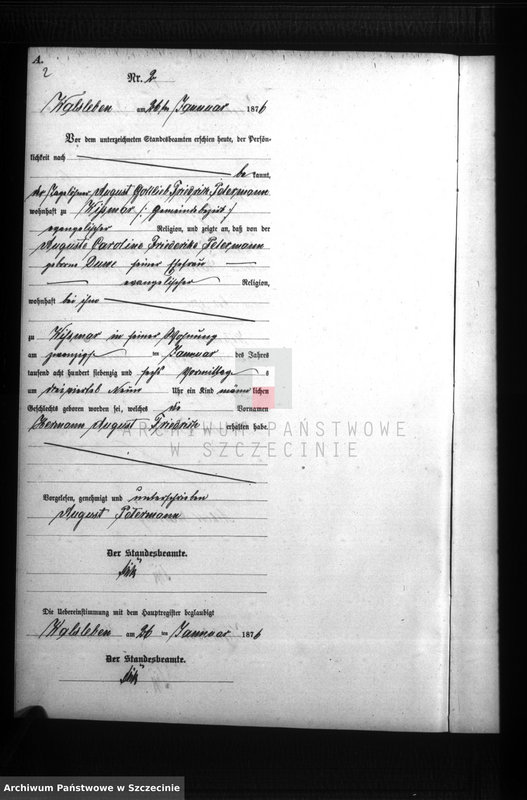 A.
2
Nr. 2
Walsleben am 26 ten Januar 1876
Vor dem unterzeichneten Standesbeamten erschien heute, der Persön-
lichkeit nach
be kannt,
der Tagelöhner August Gottlieb Friedrich Petermann
wohnhaft zu Wismar /: Gemeindebezirk :/
evangelischer Religion, und zeigte an, daß von der
Auguste Caroline Friederike Petermann
geborne Duwe seiner Ehefrau
evangelischer Religion,
wohnhaft bei ihm
zu Wismar in seiner Wohnung
am zwanzigst ten Januar des Jahres
tausend acht hundert siebenzig und sechs Vormittags
um dreiviertel Neun Uhr ein Kind männ lichen
Geschlechts geboren worden sei, welches die Vornamen
Hermann August Friedrich erhalten habe.
ARCHIWUM PAŃSTWOWE
W SZCZECINIE
Vorgelesen, genehmigt und unterschrieben
August Petermann
Der Standesbeamte.
Die Uebereinstimmung mit dem Hauptregister beglaubigt
Walsleben am 26 ten Januar 1876
Der Standesbeamte.
Archiwum Państwowe w Szczecinie